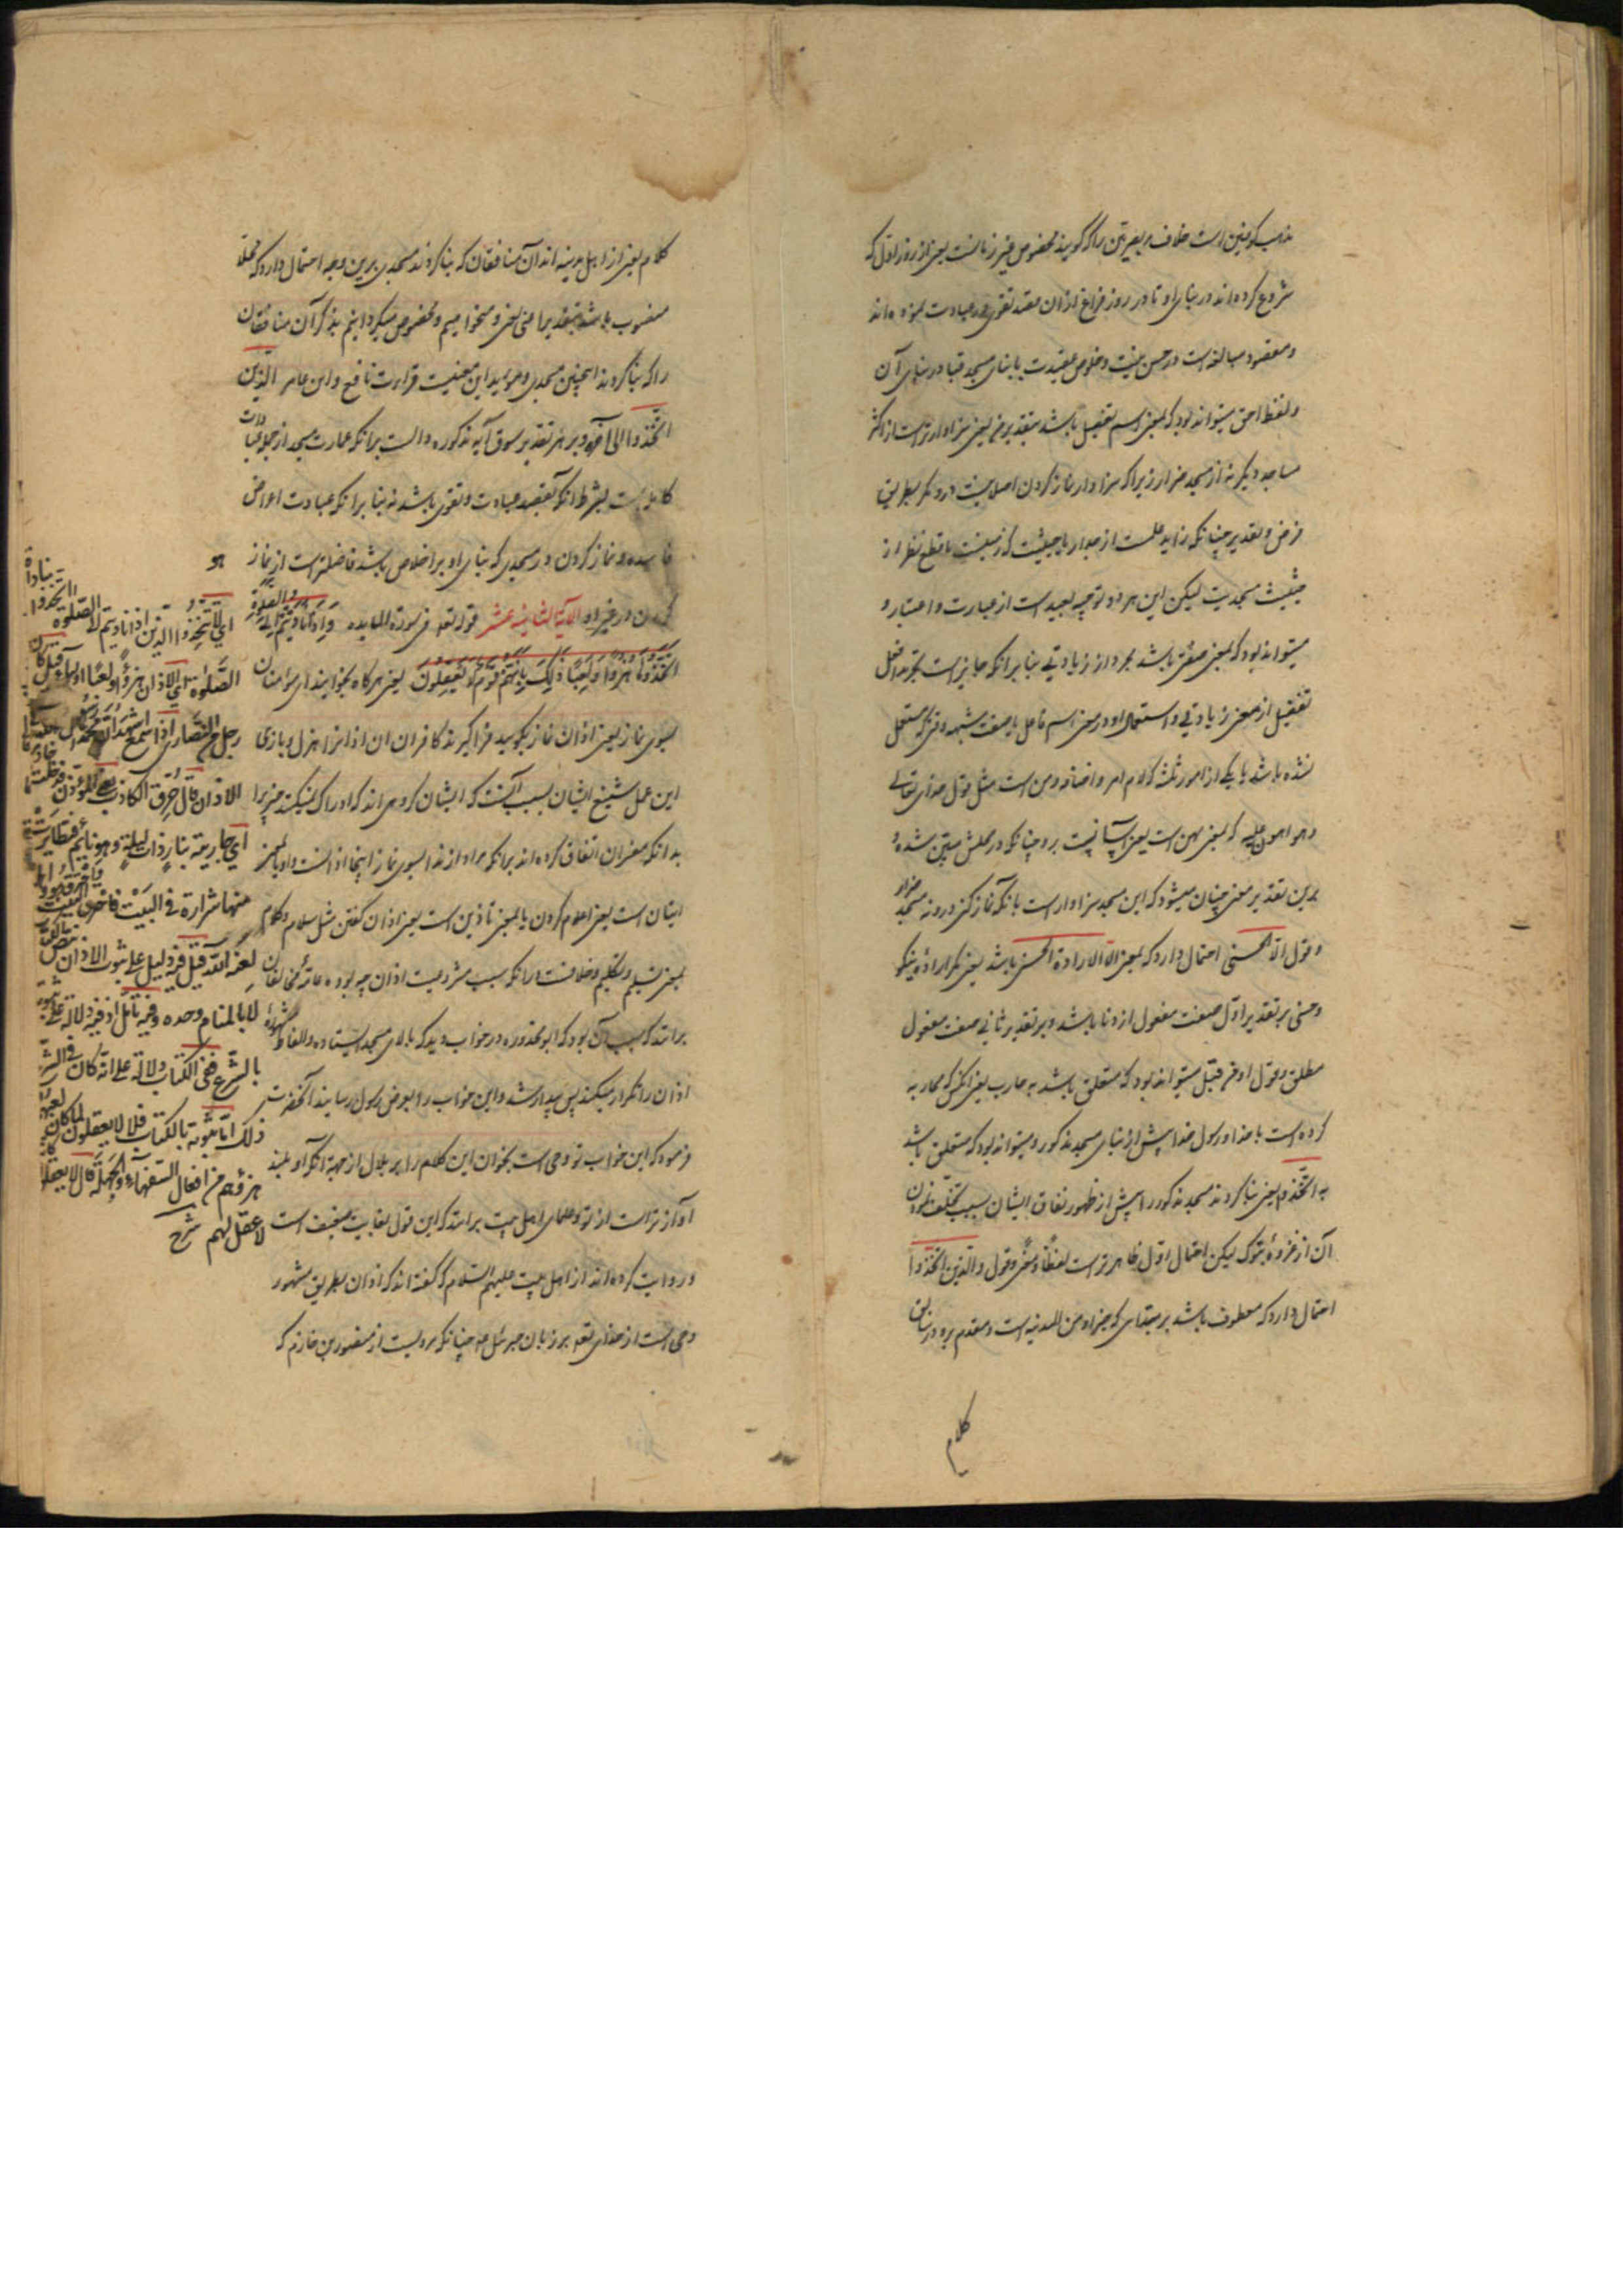 مذهب کوفیین است خلاف بصریین را که گویند مخصوص بغیر زمانست یعنی از روز اول که
شروع کرده‌اند در بنای او تا در روز فراغ ازان مقصد تقوی و عبادت بوده‌اند
و مقصود مبالغه است در حسن نیت و خلوص عقیدت بانیان مسجد قبا در بنای آن
و لفظ احق میتواند بود که بمعنی اسم تفضیل باشد بتقدیر من یعنی سزاوارتر است از اکثر
مساجد دیگر نه از مسجد ضرار زیرا که سزاوار نماز کردن اصلا نیست درو مگر بطریق
فرض و تقدیر چنانکه زاید اعلمست از جدار یا حیثیت که زمینست با قطع نظر از
حیثیت مسجدیت لیکن این هر دو توجیه بعید است از عبارت و اعتبار و
میتواند بود که بمعنی صفتی باشد مجرد از زیادتی بنا برانکه جایز است تجرید افعل
تفضیل از معنی زیادتی و استعمال او در معنی اسم فاعل یا صفت مشبهه وقتی که مستعمل
نشده باشد با یکی از امور ثلثه که لام و اضافه و من است مثل قول خدای تعالی
و هو اهون علیه که بمعنی هین است یعنی آسانیست برو چنانکه در محلش مبین شده و
برین تقدیر معنی چنان میشود که این مسجد سزاوار است بانکه نماز کنی درو نه مسجد ضرار
و قول الا الحسنی احتمال دارد که بمعنی الا الارادة الحسنی باشد یعنی مگر اراده نیکو
و حسنی بر تقدیر اول صفت مفعول اردنا باشد و بر تقدیر ثانی صفت مفعول
مطلق و قول او من قبل میتواند بود که متعلق باشد به حارب یعنی انکس که محاربه
کرده است با خدا و رسول خدا پیش از بنای مسجد مذکور و میتواند بود که متعلق باشد
به اتخذوا یعنی بنا کردند مسجد مذکور را پیش از ظهور نفاق ایشان بسبب تخلف نمودن
آن از غزوهٔ تبوک لیکن احتمال اول ظاهرتر است لفظا و معنی و قول والذین اتخذوا
احتمال دارد که معطوف باشد بر مبتدای که خبر او من المدینه است و مقدم برو در سابق
کلام
کلام یعنی از اهل مدینه اند آن منافقان که بنا کردند مسجدی برین وجه احتمال دارد که محلا
منصوب باشد بتقدیر اعنی یعنی و میخواهیم و مخصوص میگردانیم بذکر آن منافقان
را که بنا کردند اینچنین مسجدی و موید این معنیست قراءت نافع و ابن عامر الذین
اتخذوا الی آخره و بر هر تقدیر سوق آیه مذکوره دالست برانکه عمارت مسجد از جمله عبادات
کامله است بشرط انکه بقصد عبادت و تقوی باشد نه بنا برانکه عبادت اعراض
فاسده و نماز کردن در مسجدی که بنای او بر اخلاص باشد فاضلتر است از نماز
کردن در غیر او الآیة الثانیة عشر قوله تعه فی سورة المایده وَاِذَا نَادَیْتُمْ اِلَی الصَّلٰوةِ
اتَّخَذُوهَا هُزُوًا وَلَعِبًا ذٰلِکَ بِاَنَّهُمْ قَوْمٌ لَا یَعْقِلُونَ یعنی هرگاه بخوانید ای مؤمنان
بسوی نماز یعنی اذان نماز بگویید فرا گیرند کافران ان اذانرا هزل و بازی
این عمل شنیع ایشان بسبب آنست که ایشان گروهی اند که ادراک نمیکنند چیزیرا
بدانکه مفسران اتفاق کرده‌اند برانکه مراد از ندا بسوی نماز اینجا اذانست و او یا بمعنی
ایذان است یعنی اعلام کردن یا بمعنی تأذین است یعنی اذان گفتن مثل سلام و کلام
بمعنی تسلیم و تکلیم و خلافست درانکه سبب مشروعیت اذان چه بوده عامهٔ مخالفان
برانند که سبب آن بود که ابو محذوره در خواب دید که بالای مسجد ایستاده و الفاظ مشهوره
اذان را تکرار میکند پس بیدار شد و این خواب را بعرض رسول رسانید آنحضرت
فرمود که این خواب تو وحی است بخوان این کلام را بر بلال از جهة انکه او بلند
آوازتر است از تو و علمای اهل بیت برانند که این قول بغایت ضعیف است
و روایت کرده‌اند از اهل بیت علیهم السلام که گفته‌اند که اذان بطریق مشهور
وحی است از خدای تعه بر زبان جبرئیل عه چنانکه مرویست از منصور بن حازم که
ای لا تتخذوا الذین اذا نادیتم الی الصلوة اتخذوا
الصلوة ای الاذان هزوا ولعبا اولیاء قیل کان
رجل من النصاری اذا سمع اشهد ان محمدا رسول الله فی
الاذان قال حرق الکاذب یعنی المؤذن فدخلت خادمته
ای جاریته بنار ذات لیلة وهو نایم فتطایرت
منها شرارة فی البیت فاحرق البیت
لعنه الله قیل فیه دلیل علی ثبوت الاذان بنص الکتاب
لا بالمنام وحده وفیه تأمل اذ فیه دلالة علی ثبوته
بالشرع ففی الکتاب دلالة علی انه کان فی الشرع
ذلک اما ثبوته بالکتاب فلا لا یعقلون لما کان لعبهم
هزؤهم من افعال السفهاء والجهلة قال لا یعقلون کانه
لا عقل لهم شرح